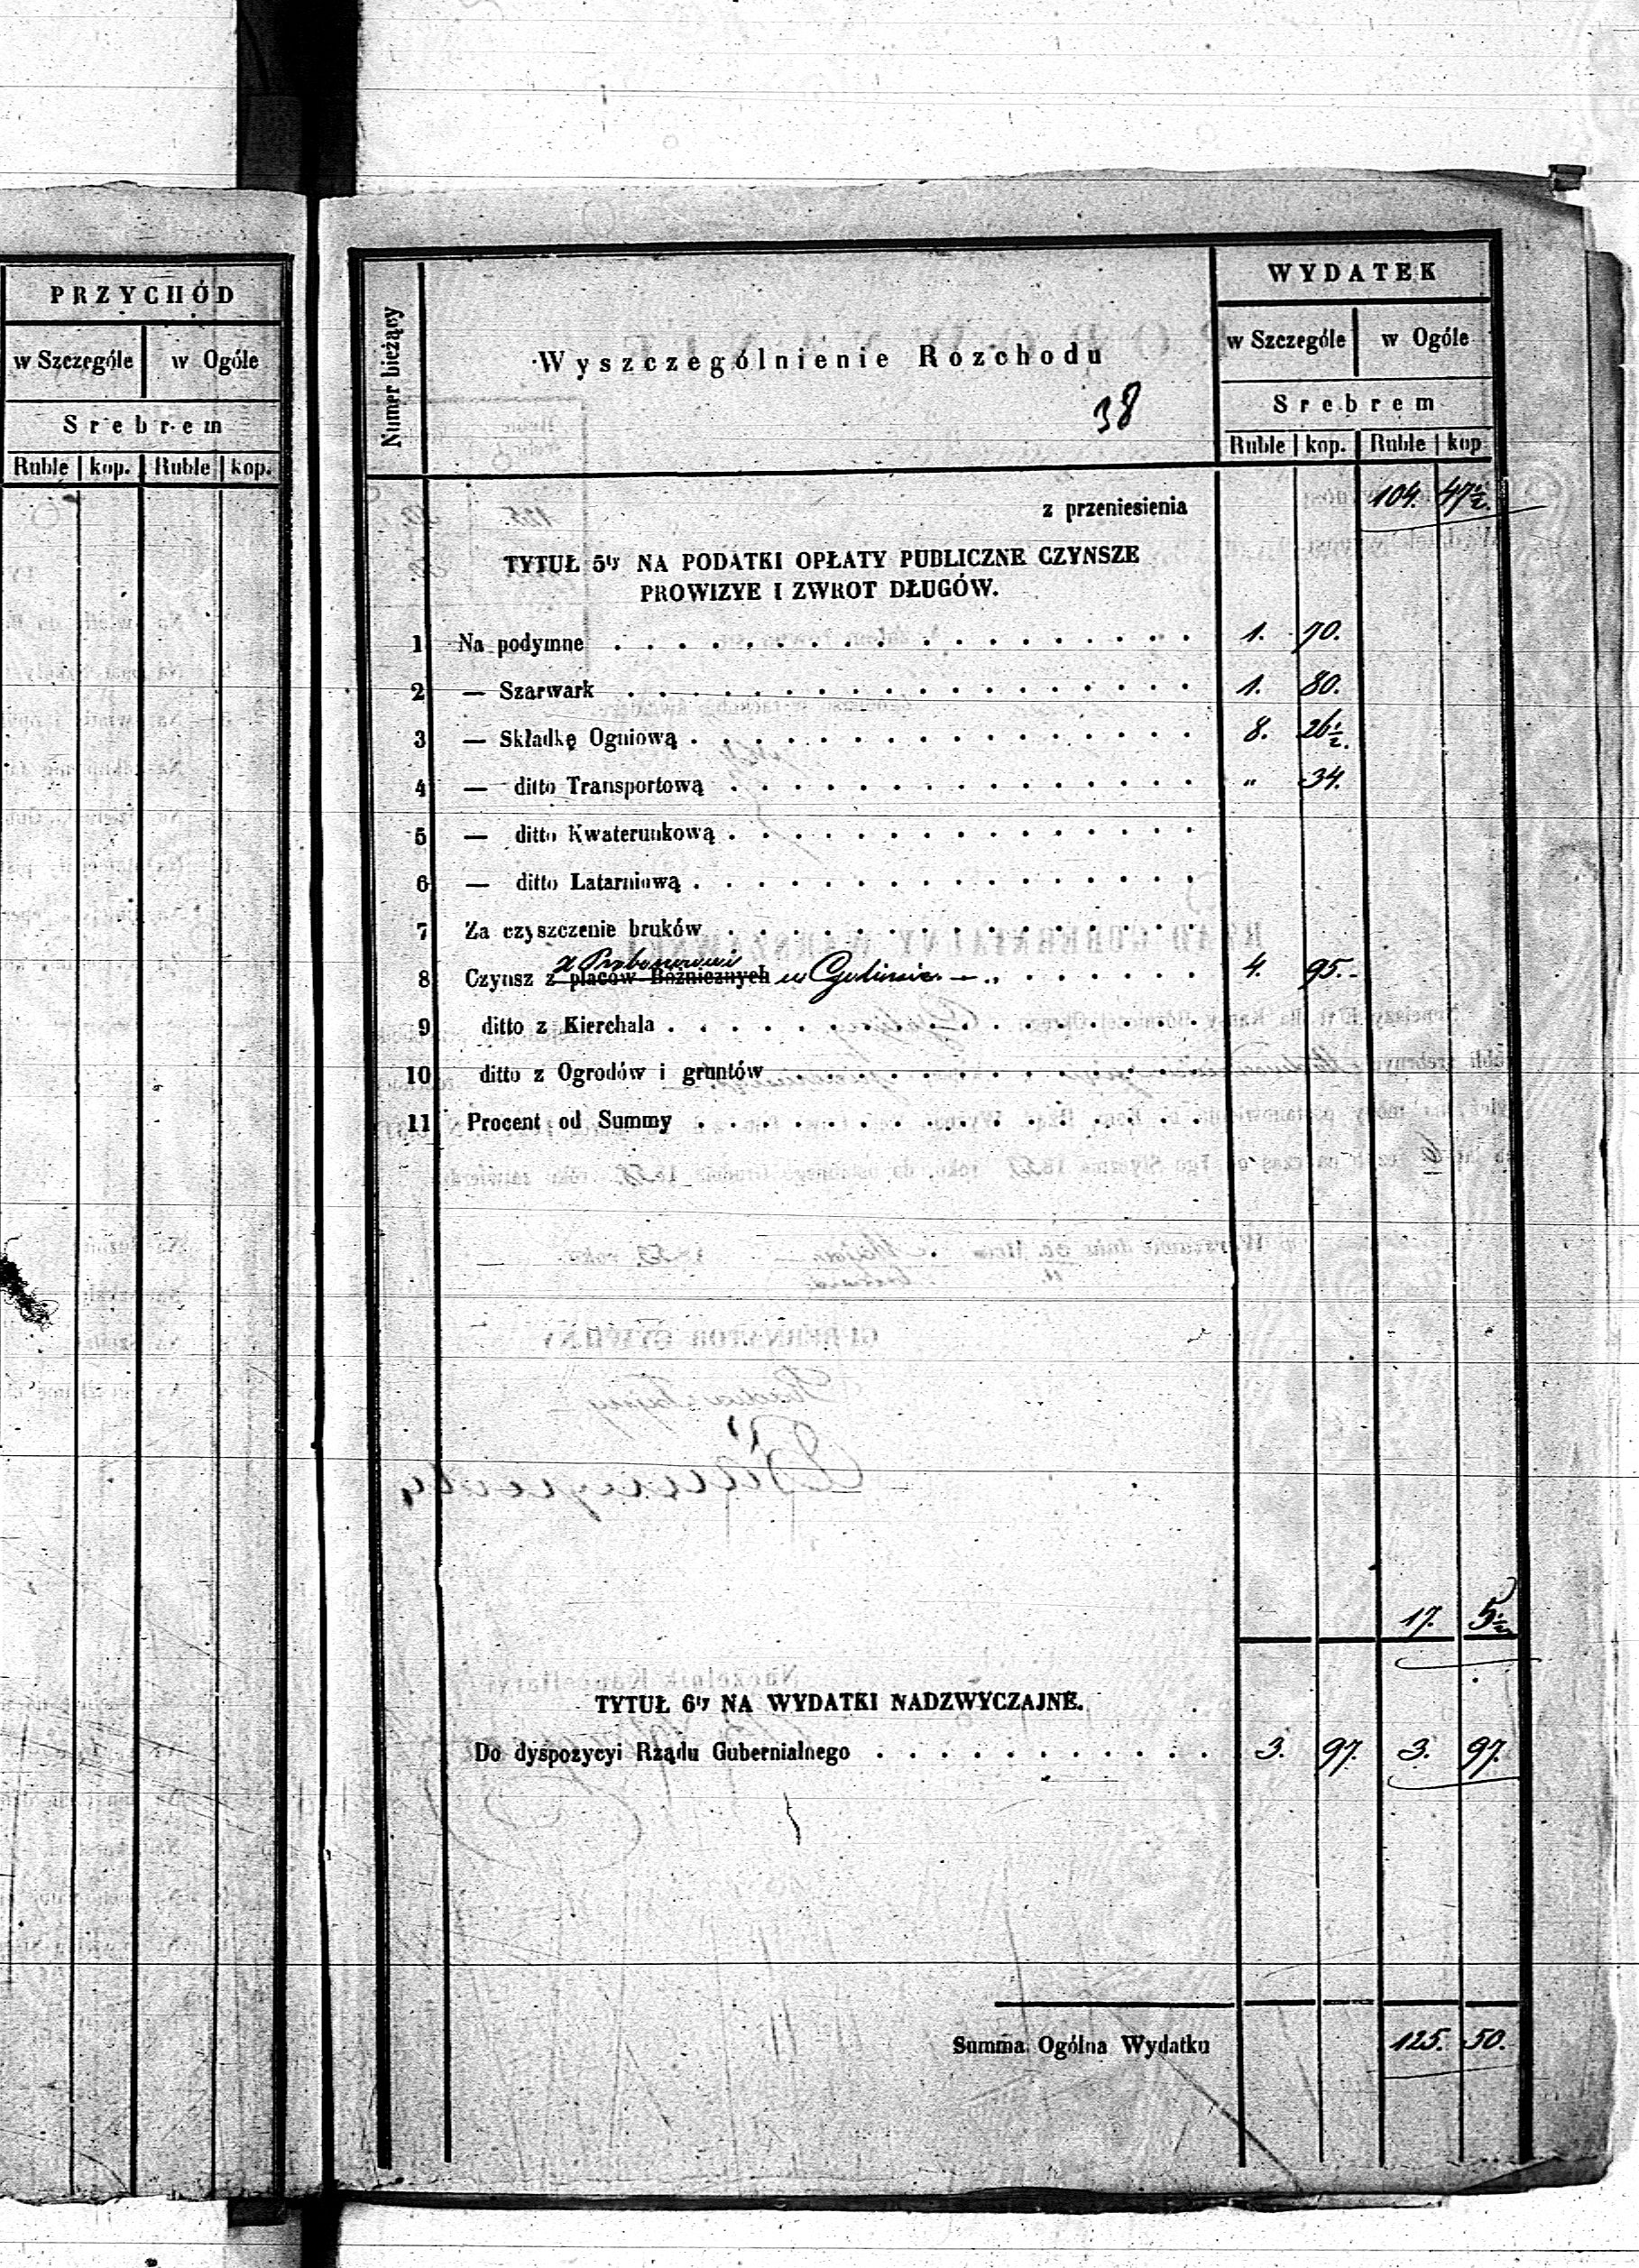 PRZYCHÓD
w Szczególe w Ogóle
Srebrem
Ruble kop. Ruble kop.
Numer bieżący
Wyszczególnienie Rozchodu
38
WYDATEK
w Szczególe w Ogóle
Srebrem
Ruble kop. Ruble kop
z przeniesienia 104. 47½.
TYTUŁ 5ty NA PODATKI OPŁATY PUBLICZNE CZYNSZE
PROWIZYE I ZWROT DŁUGÓW.
1 Na podymne . . . . . . . . . . . . . . . . . . 1. 70.
2 — Szarwark . . . . . . . . . . . . . . . . . . 1. 80.
3 — Składkę Ogniową . . . . . . . . . . . . . . . . 8. 26½.
4 — ditto Transportową . . . . . . . . . . . . . . . „ 34.
5 — ditto Kwaterunkową . . . . . . . . . . . . . . .
6 — ditto Latarniową . . . . . . . . . . . . . . . .
7 Za czyszczenie bruków . . . . . . . . . . . . . . .
8 Czynsz z placów Bóżnicznych w . . . . . . . 4. 95.
9 ditto z Kierchala . . . . . . . . . . . . . . . . .
10 ditto z Ogrodów i gruntów . . . . . . . . . . . . .
11 Procent od Summy . . . . . . . . . . . . . . . .
17. 5½
TYTUŁ 6ty NA WYDATKI NADZWYCZAJNE.
Do dyspozycyi Rządu Gubernialnego . . . . . . . . . . . 3. 97. 3. 97.
Summa Ogólna Wydatku 125. 50.